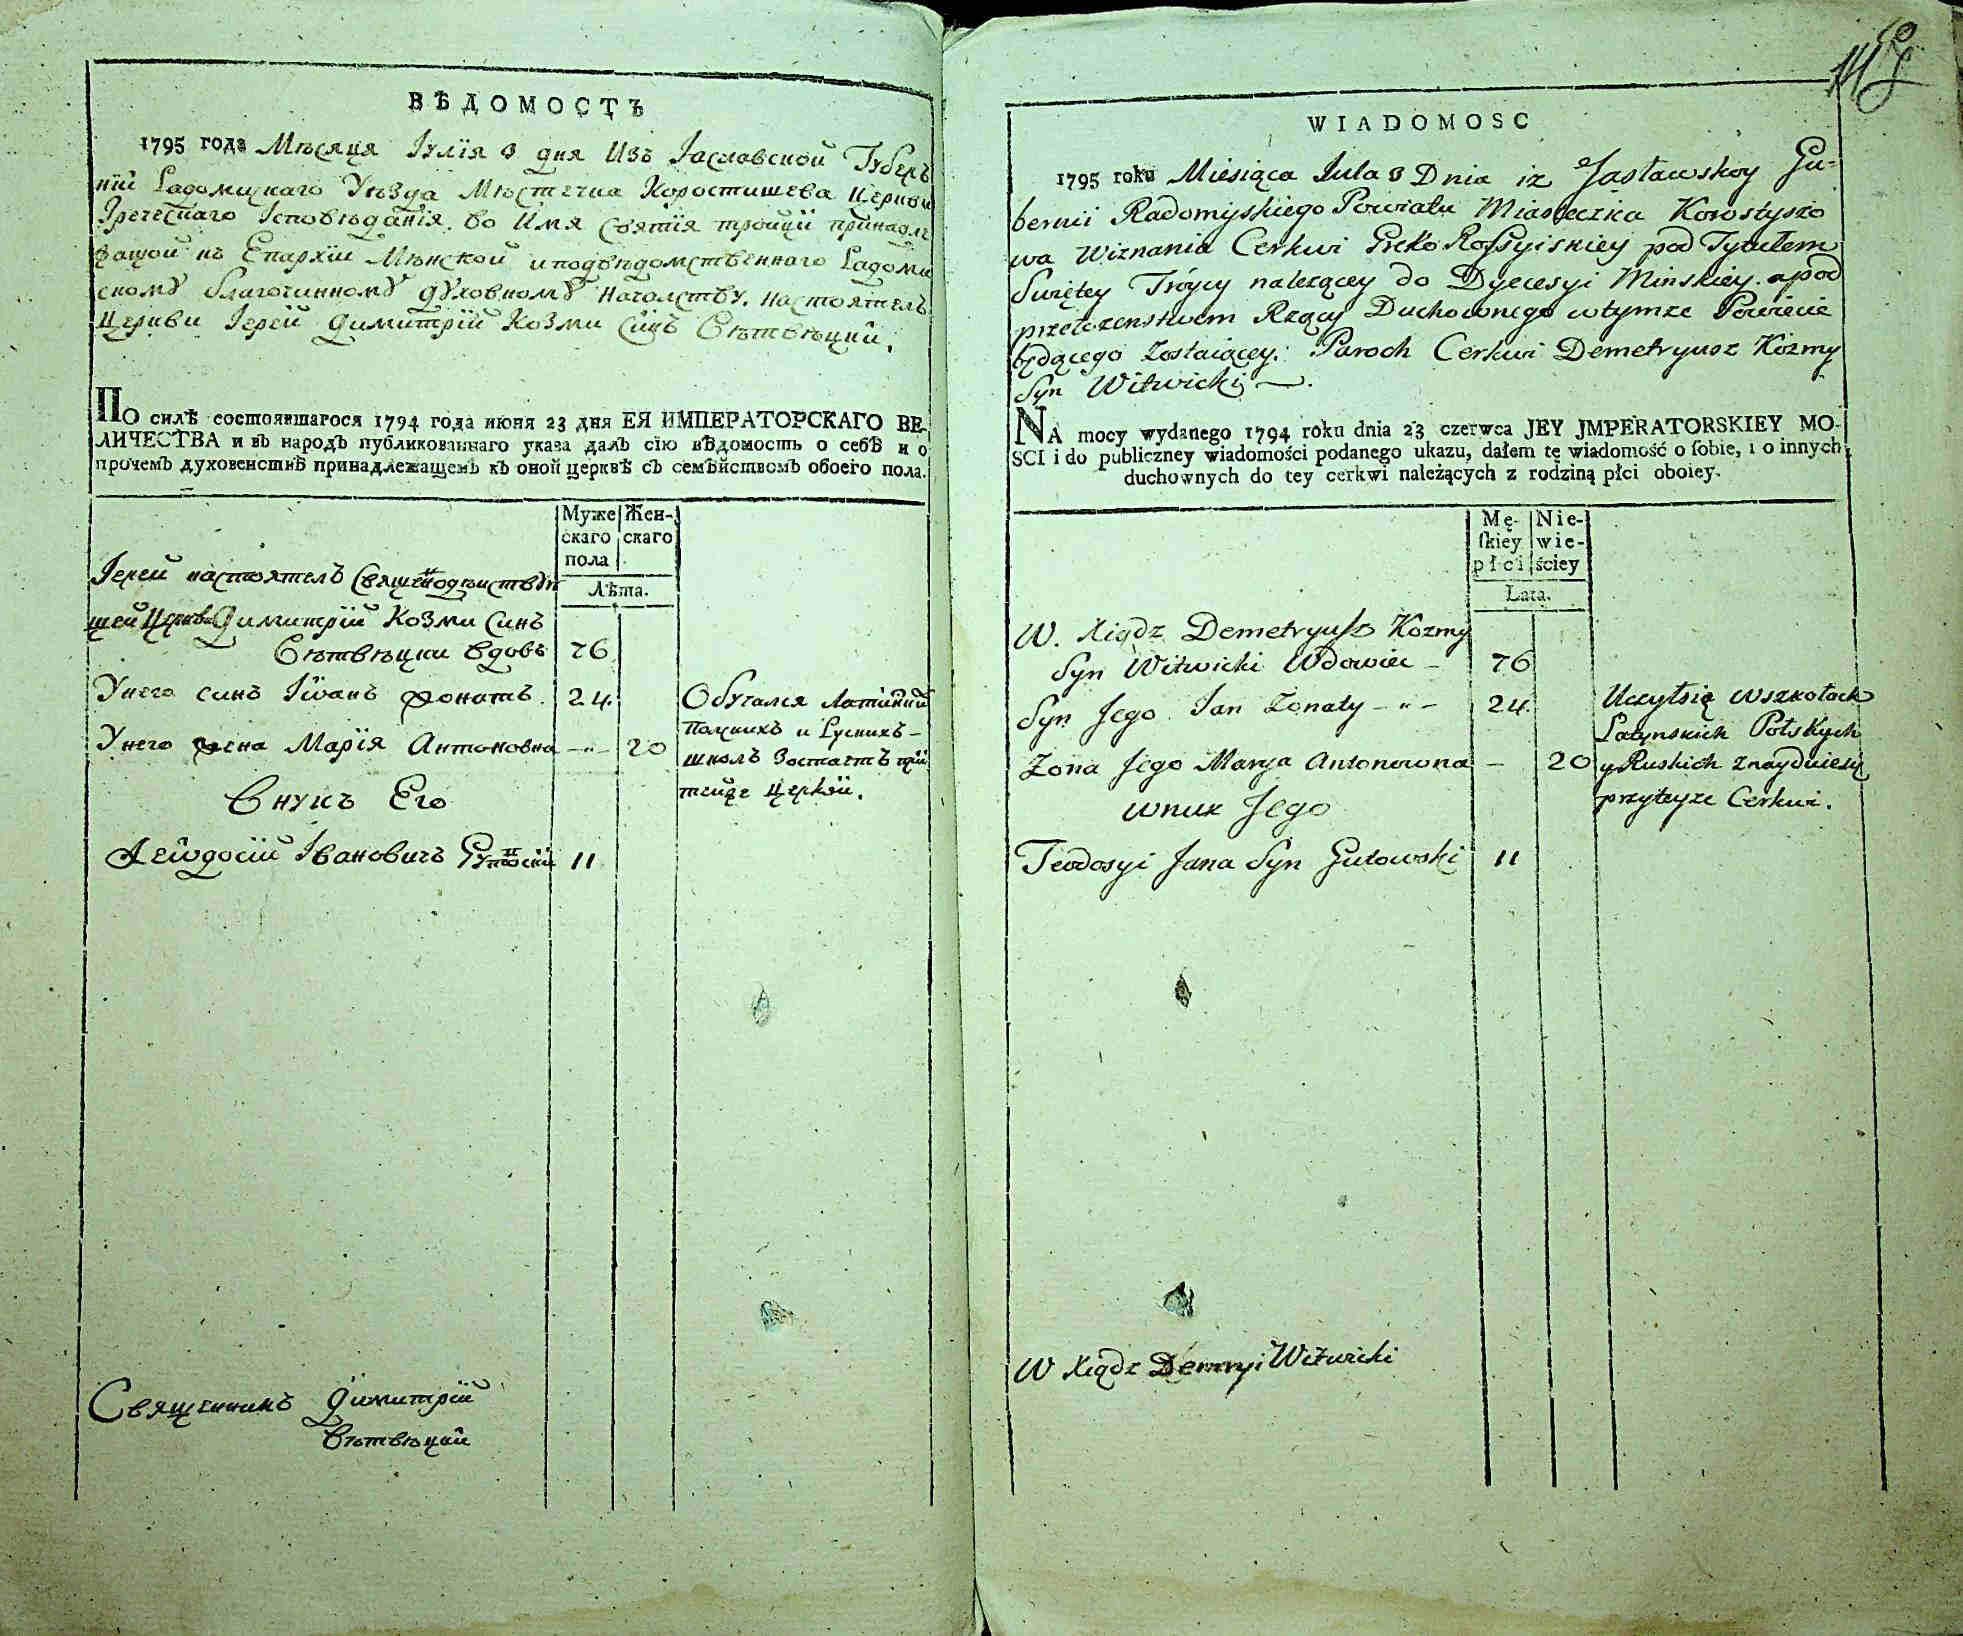 ВѢДОМОСТЬ
1795 года Мѣсяця Іулїя 3 дня Изъ Іаславской Губер
нїи Радомиского Уѣзда Мѣстечка Коростишева Церкви
Греческаго Ісповѣданїя. во Имя Святїя тройци принадле
жащой къ Епархїи Мѣнской и подвѣдомственнаго Радоми
скому благочинному духовному началству. настоятелъ
Церкви Іерей Димитрїй Козми Синъ Вѣтвѣцкий.
ПО силѣ состоявшагося 1794 года июня 23 дня ЕЯ ИМПЕРАТОРСКАГО ВЕ-
ЛИЧЕСТВА и въ народъ публикованнаго указа далъ сїю вѣдомость о себѣ и о
прочемъ духовенствѣ принадлежащемъ къ оной церквѣ съ семѣйствомъ обоего пола.
Муже Жен-
скаго скаго
пола
Лѣта.
Іерей настоятелъ Священодѣиствую
щей Церкве Димитрїй Козми Синъ
Вѣтвѣцки вдовъ 76
У него синъ Іѡанъ жонатъ. 24. Обучался латинских
полских и Руских
школъ Зостаетъ при
тейже церкви.
У него жена Марїя Антоновна – 20
Внукъ Его
Ѳеѡдосїй Івановичъ Гутовски 11
Священникъ Димитрїй
Вѣтвѣцкий
WIADOMOSC
1795 roku Miesiąca Jula 3 Dnia iz Jasławskoy Gu-
bernii Radomyskiego Powiatu Miasteczka Korostyszo
wa Wiznania Cerkwi Greko Rossyiskiey pod Tytułem
Świętey Tróycy nalezącey do Dyecesyi Minskiey. a pod
przełozenstwem Rządu Duchownego w tymze Powiecie
będącego zostaiącey. Paroch Cerkwi Demetryusz Kozmy
Syn Witwicki —.
NA mocy wydanego 1794 roku dnia 23 czerwca JEY JMPERATORSKIEY MO-
SCI i do publiczney wiadomości podanego ukazu, dałem tę wiadomość o sobie, i o innych
duchownych do tey cerkwi należących z rodziną płci oboiey.
Mę- Nie-
skiey wie-
płci ściey
Lata.
W. Xiądz Demetryusz Kozmy
Syn Witwicki Wdowiec – 76
Syn Jego Jan Zonaty – " – 24. Uczył się w szkołach
Łacynskich Polskych
y Ruskich znayduie się
przy teyze Cerkwi.
Zona Jego Marya Antonowna – 20
wnuk Jego
Teodosyi Jana Syn Gutowski 11
W Xiądz Demtryi Witwicki